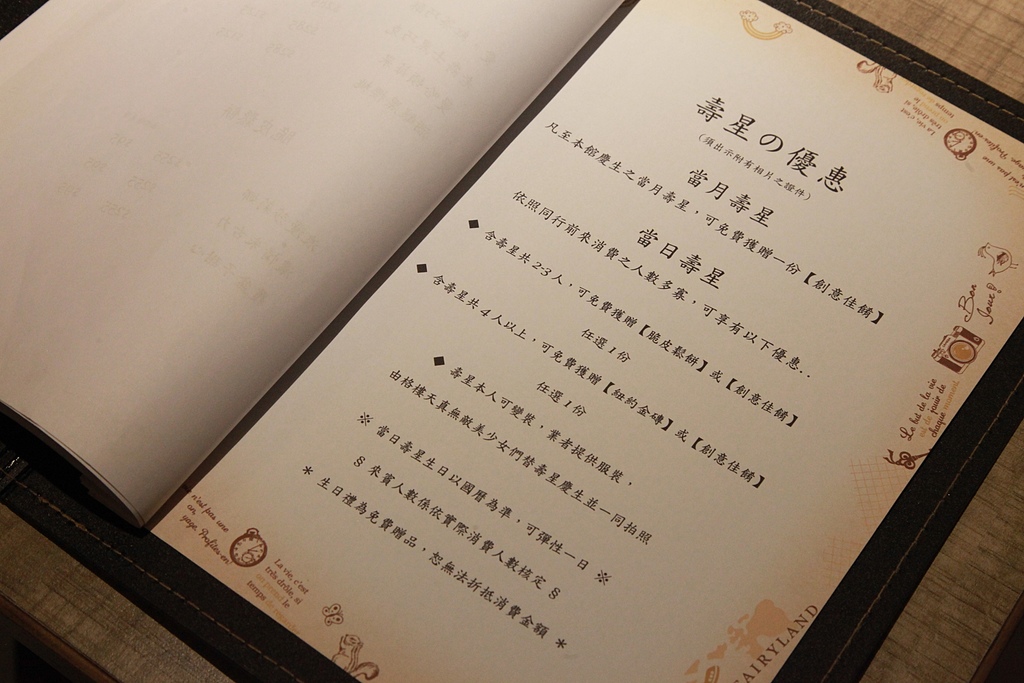 壽星の優惠
(須出示附有相片之證件)
當月壽星
凡至本館慶生之當月壽星，可免費獲贈一份【創意佳餚】
當日壽星
依照同行前來消費之人數多寡，可享有以下優惠..
◆ 含壽星共2-3人，可免費獲贈【脆皮鬆餅】或【創意佳餚】
任選1份
◆ 含壽星共4人以上，可免費獲贈【紐約金磚】或【創意佳餚】
任選1份
◆ 壽星本人可變裝，業者提供服裝，
由格樓天真無敵美少女們替壽星慶生並一同拍照
※ 當日壽星生日以國曆為準，可彈性一日 ※
§ 來賓人數係依實際消費人數核定 §
* 生日禮為免費贈品，恕無法折抵消費金額 *
Bon
Jour
Le but de la vie
est de jouir de
chaque moment
La vie, c'est
très drôle, si
temps
La vie, c'est
très drôle, si
on prend le
temps
n'est pas une
page. Profites-en!
FAIRYLAND